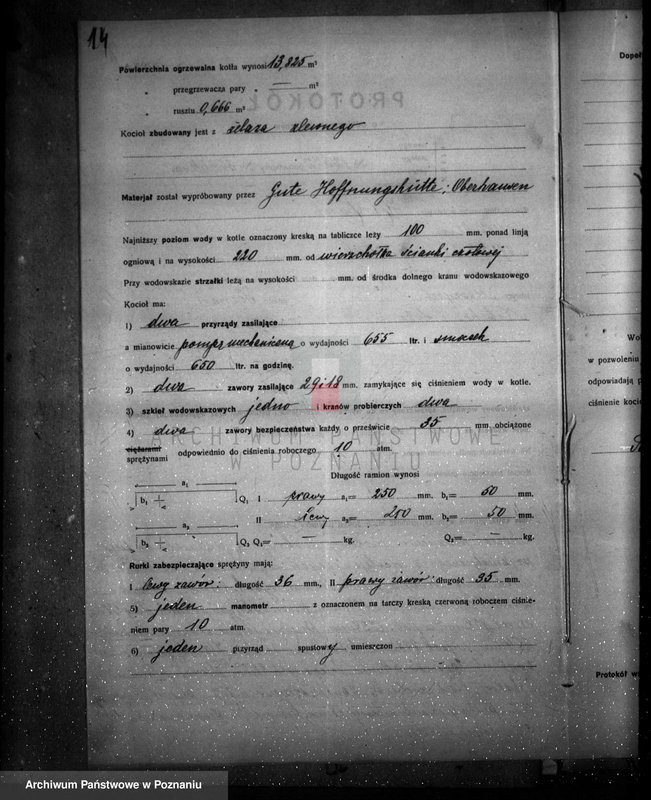 14
Powierzchnia ogrzewalna kotła wynosi 13,825 m²
„ przegrzewacza pary „ — m²
„ rusztu 0,666 m²
Kocioł zbudowany jest z żelaza zlewnego
Materjał został wypróbowany przez Gute Hoffnungshütte; Oberhausen
Najniższy poziom wody w kotle oznaczony kreską na tabliczce leży 100 mm. ponad linją
ogniową i na wysokości 220 mm. od wierzchołka ścianki czołowej
Przy wodowskazie strzałki leżą na wysokości mm. od środka dolnego kranu wodowskazowego
Kocioł ma:
1) dwa przyrządy zasilające
a mianowicie pompę mechaniczną o wydajności 655 ltr. i smoczek
o wydajności 650 ltr. na godzinę.
2) dwa zawory zasilające 29 i 18 mm. zamykające się ciśnieniem wody w kotle.
3) szkieł wodowskazowych jedno i kranów probierczych dwa
4) dwa zawory bezpieczeństwa każdy o prześwicie 35 mm. obciążone
ciężarami
sprężynami odpowiednio do ciśnienia roboczego 10 atm.
Długość ramion wynosi
a₁
b₁ Q₁ I prawy a₁= 250 mm. b₁= 50 mm.
II lewy a₂= 250 mm. b₂= 50 mm.
a₂
b₂ Q₂ Q₁= — kg. Q₂= — kg.
Rurki zabezpieczające sprężyny mają:
I lewy zawór: długość 36 mm., II prawy zawór: długość 35 mm.
5) jeden manometr z oznaczonem na tarczy kreską czerwoną roboczem ciśnie-
niem pary 10 atm.
6) jeden przyrząd spustowy umieszczon
PROTOKÓŁ
ARCHIWUM PAŃSTWOWE
W POZNANIU
Dopeł
Wo
w pozwoleniu
odpowiadają p
ciśnienie kocio
Protokół w
Archiwum Państwowe w Poznaniu